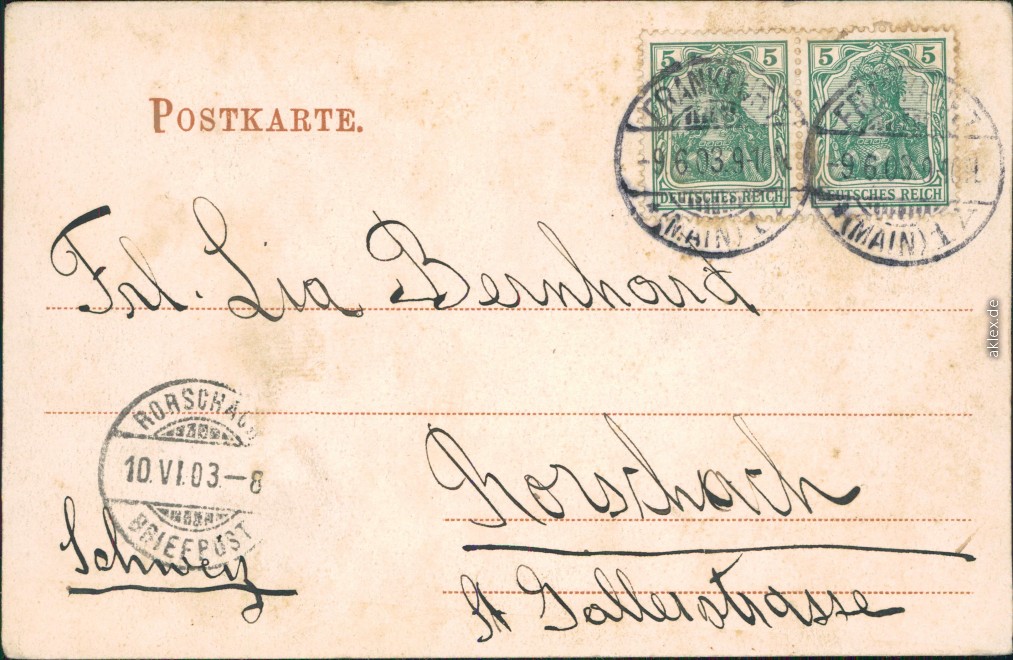 POSTKARTE.
5 5 5 5
DEUTSCHES REICH DEUTSCHES REICH
FRANKFURT
-9.6.03.9-10
(MAIN) 1
-9.6.03.9-10
(MAIN) 1
Frl. Lia Bernhard
RORSCHACH
10.VI.03.-8
BRIEFPOST
Rorschach
Schweiz
St Gallerstrasse
aklex.de